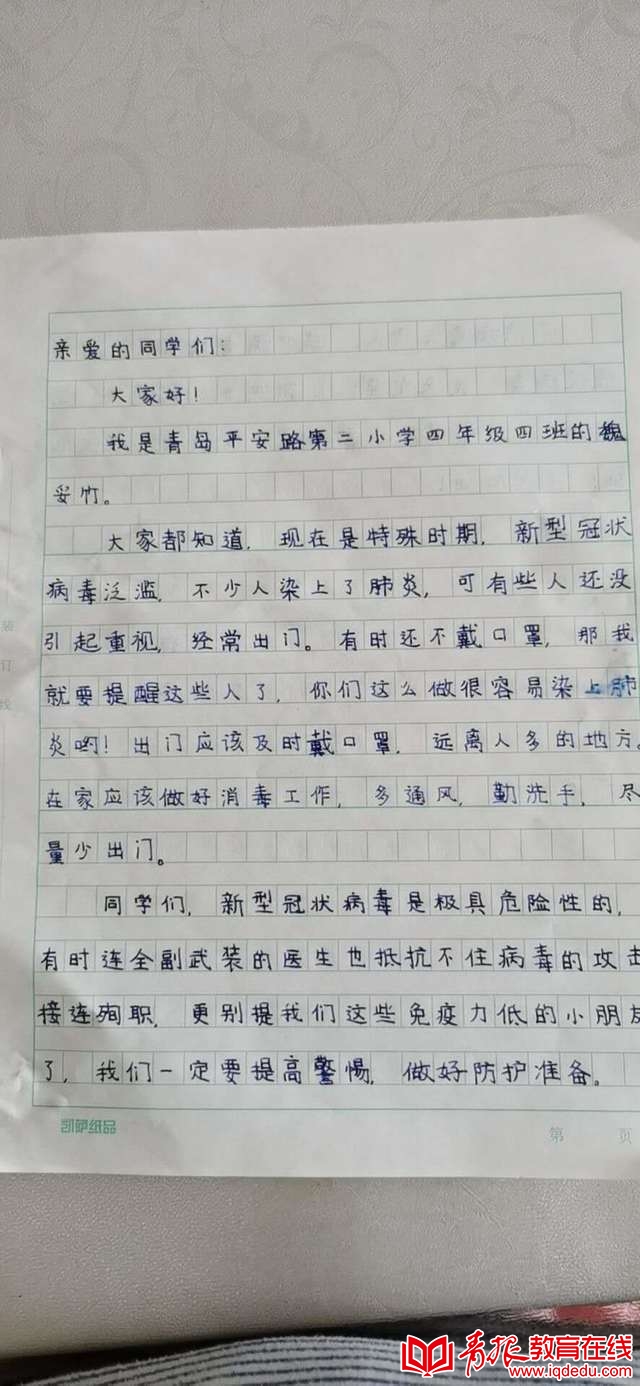 亲爱的同学们:
大家好!
我是青岛平安路第二小学四年级四班的魏
妥竹。
大家都知道,现在是特殊时期,新型冠状
病毒泛滥,不少人染上了肺炎,可有些人还没
引起重视,经常出门。有时还不戴口罩,那我
就要提醒这些人了,你们这么做很容易染上肺
炎哟!出门应该及时戴口罩,远离人多的地方。
在家应该做好消毒工作,多通风,勤洗手,尽
量少出门。
同学们,新型冠状病毒是极具危险性的,
有时连全副武装的医生也抵抗不住病毒的攻击
接连殉职,更别提我们这些免疫力低的小朋友
了,我们一定要提高警惕,做好防护准备。
凯萨纸品
第 页
装
订
线
青报教育在线
www.iqdedu.com